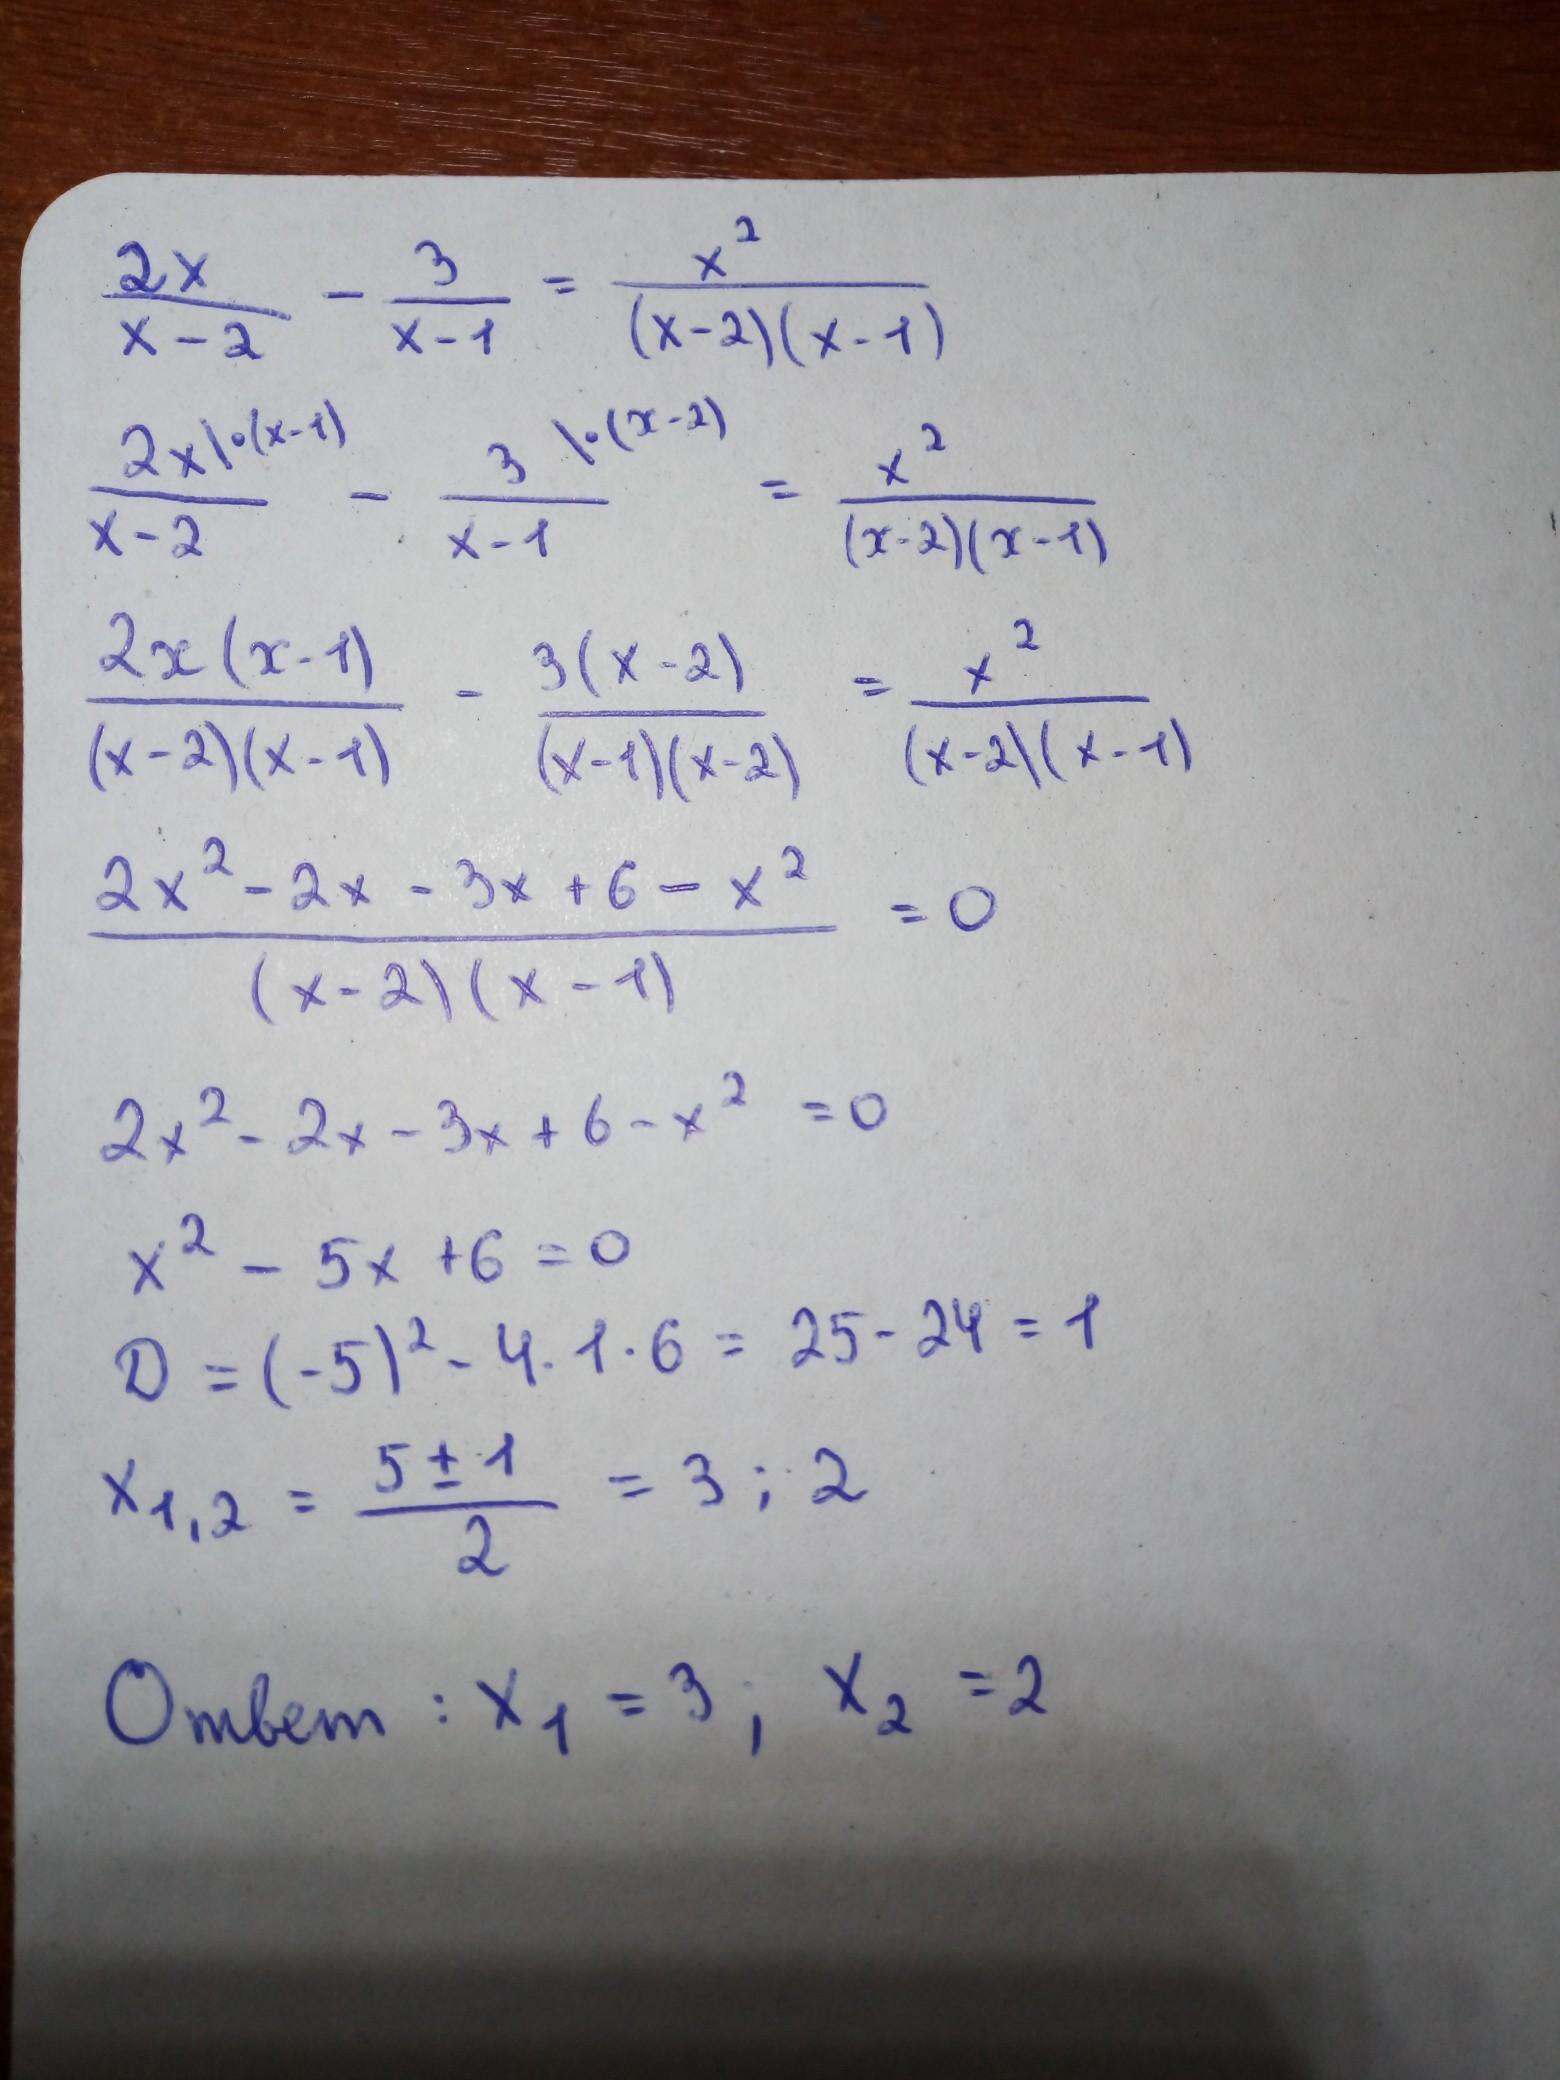 2x/(x-2) - 3/(x-1) = x²/((x-2)(x-1))
2x\·(x-1)/(x-2) - 3\·(x-2)/(x-1) = x²/((x-2)(x-1))
2x(x-1)/((x-2)(x-1)) - 3(x-2)/((x-1)(x-2)) = x²/((x-2)(x-1))
(2x² - 2x - 3x + 6 - x²)/((x-2)(x-1)) = 0
2x² - 2x - 3x + 6 - x² = 0
x² - 5x + 6 = 0
D = (-5)² - 4·1·6 = 25 - 24 = 1
x₁,₂ = (5 ± 1)/2 = 3; 2
Ответ: x₁ = 3; x₂ = 2